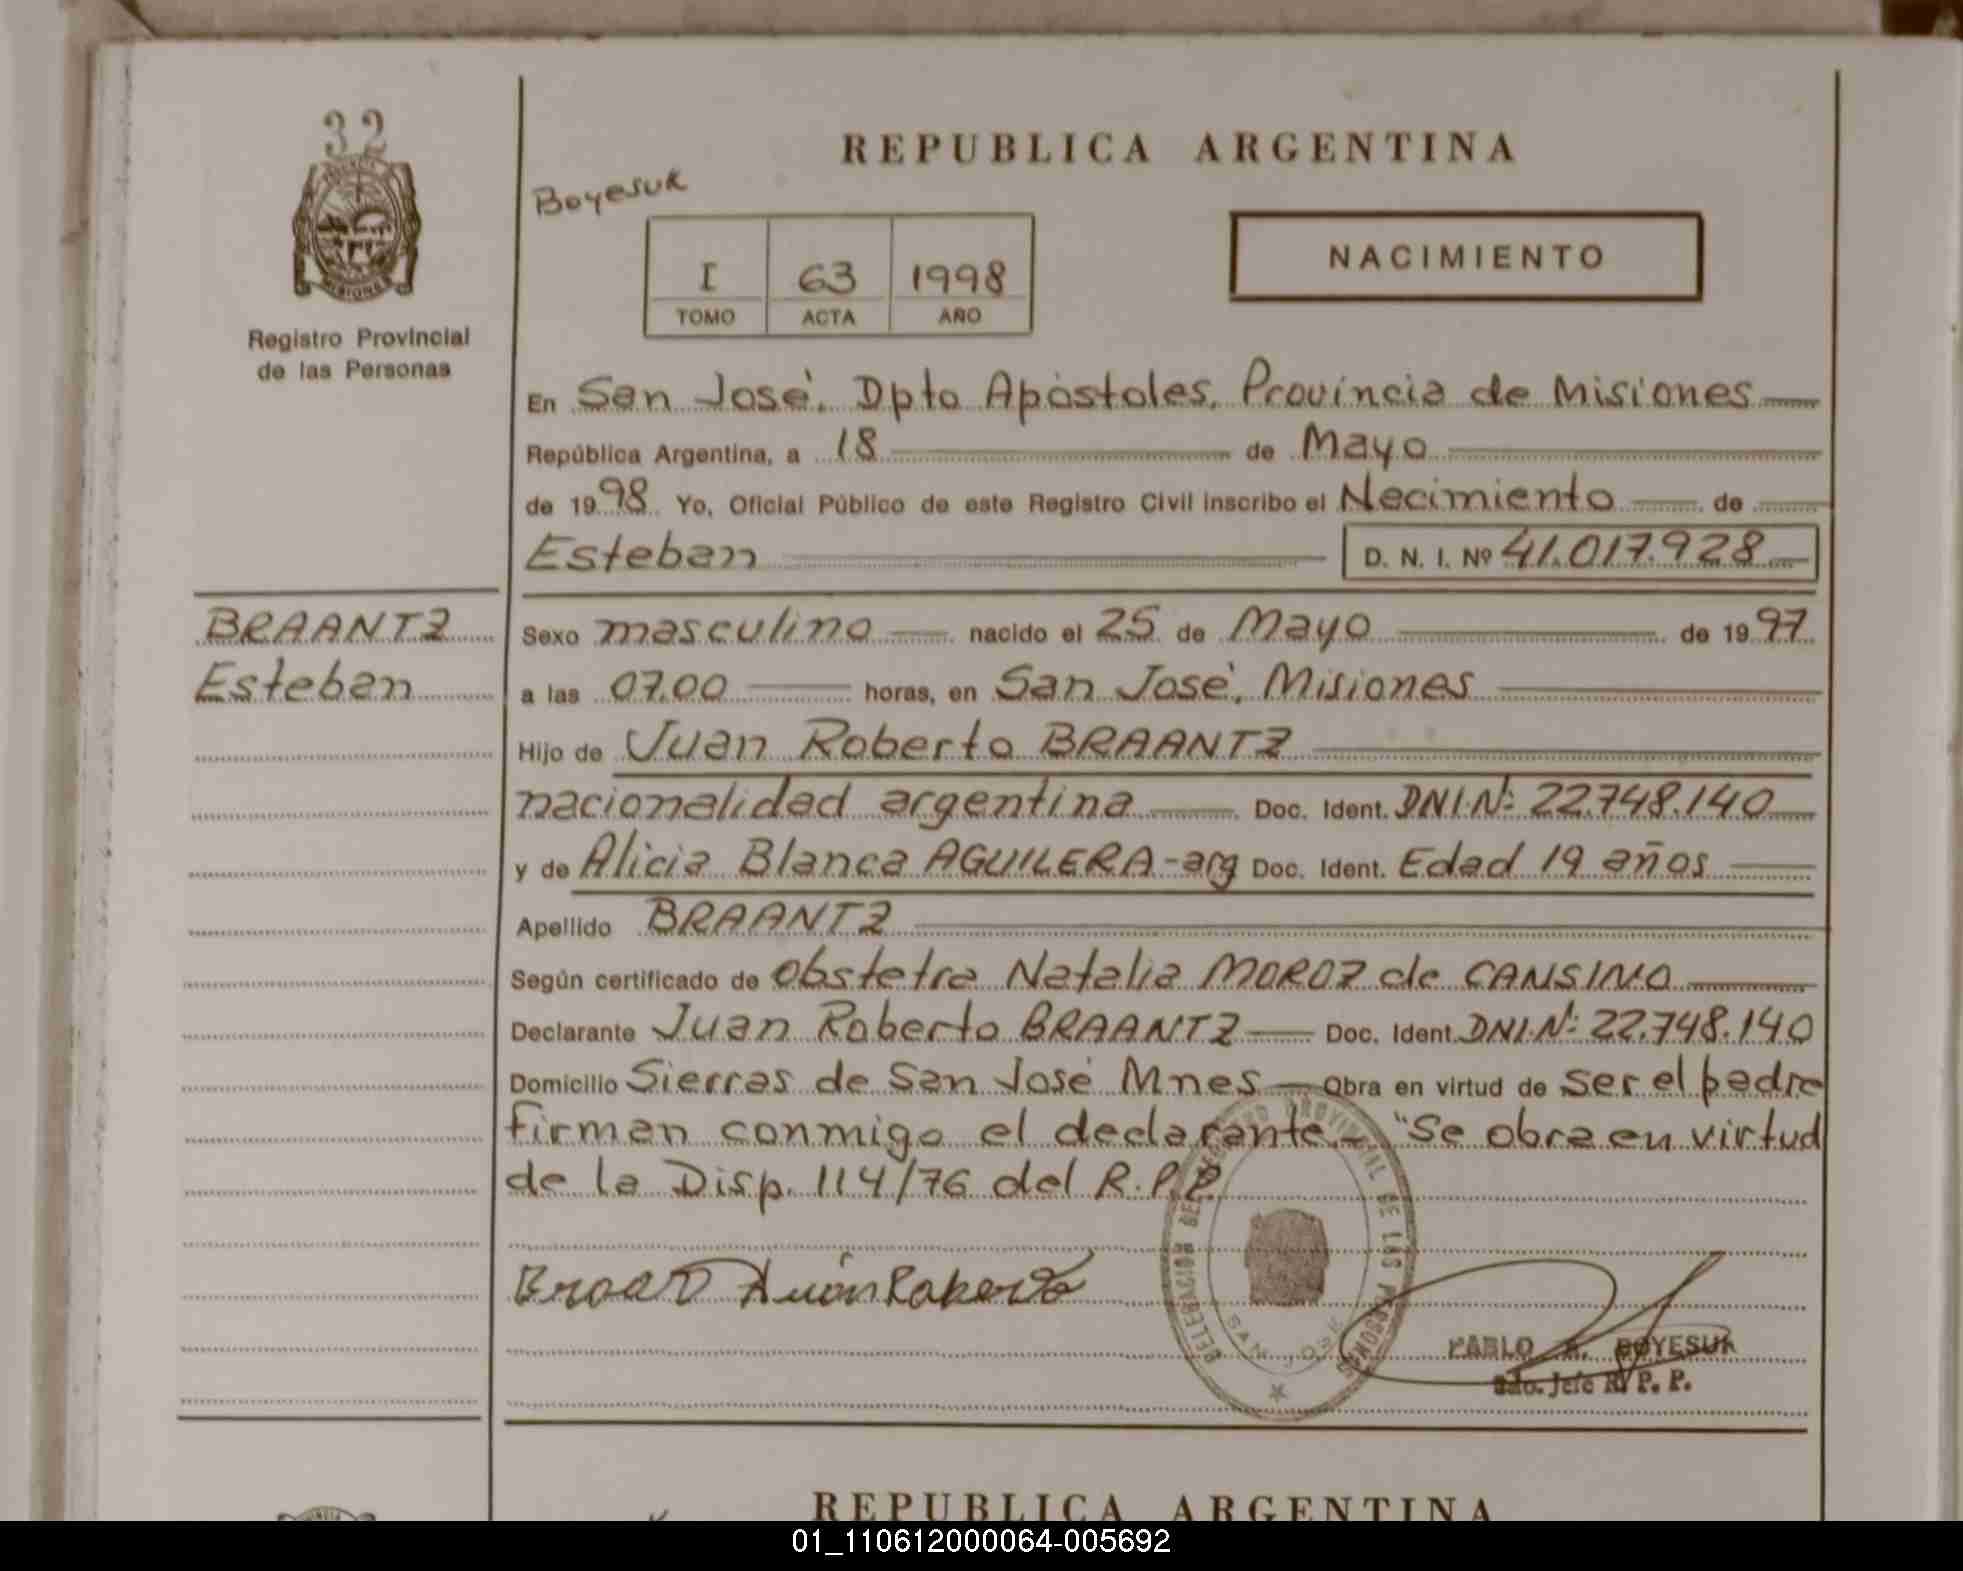 32
REPUBLICA ARGENTINA
Boyesuk
NACIMIENTO
I 63 1998
TOMO ACTA AÑO
Registro Provincial
de las Personas
En San José, Dpto Apóstoles, Provincia de Misiones
República Argentina, a 18 de Mayo
de 1998 Yo, Oficial Público de este Registro Civil inscribo el Necimiento de
Esteban D. N. I. Nº 41.017.928
BRAANTZ
Esteban
Sexo masculino nacido el 25 de Mayo de 1997
a las 07.00 horas, en San José, Misiones
Hijo de Juan Roberto BRAANTZ
nacionalidad argentina Doc. Ident. DNI.Nº: 22.748.140
y de Alicia Blanca AGUILERA-arg Doc. Ident. Edad 19 años
Apellido BRAANTZ
Según certificado de obstetra Natalia MOROZ de CANSINO
Declarante Juan Roberto BRAANTZ Doc. Ident. DNI.Nº: 22.748.140
Domicilio Sierras de San José Mnes Obra en virtud de ser el padre
firman conmigo el declarante.- "Se obra en virtud
de la Disp. 114/76 del R.P.P.
DELEGACIÓN DEL REGISTRO PROVINCIAL DE LAS PERSONAS
SAN JOSE
PABLO A. BOYESUK
Sdo. Jefe R. P. P.
REPUBLICA ARGENTINA
01_110612000064-005692